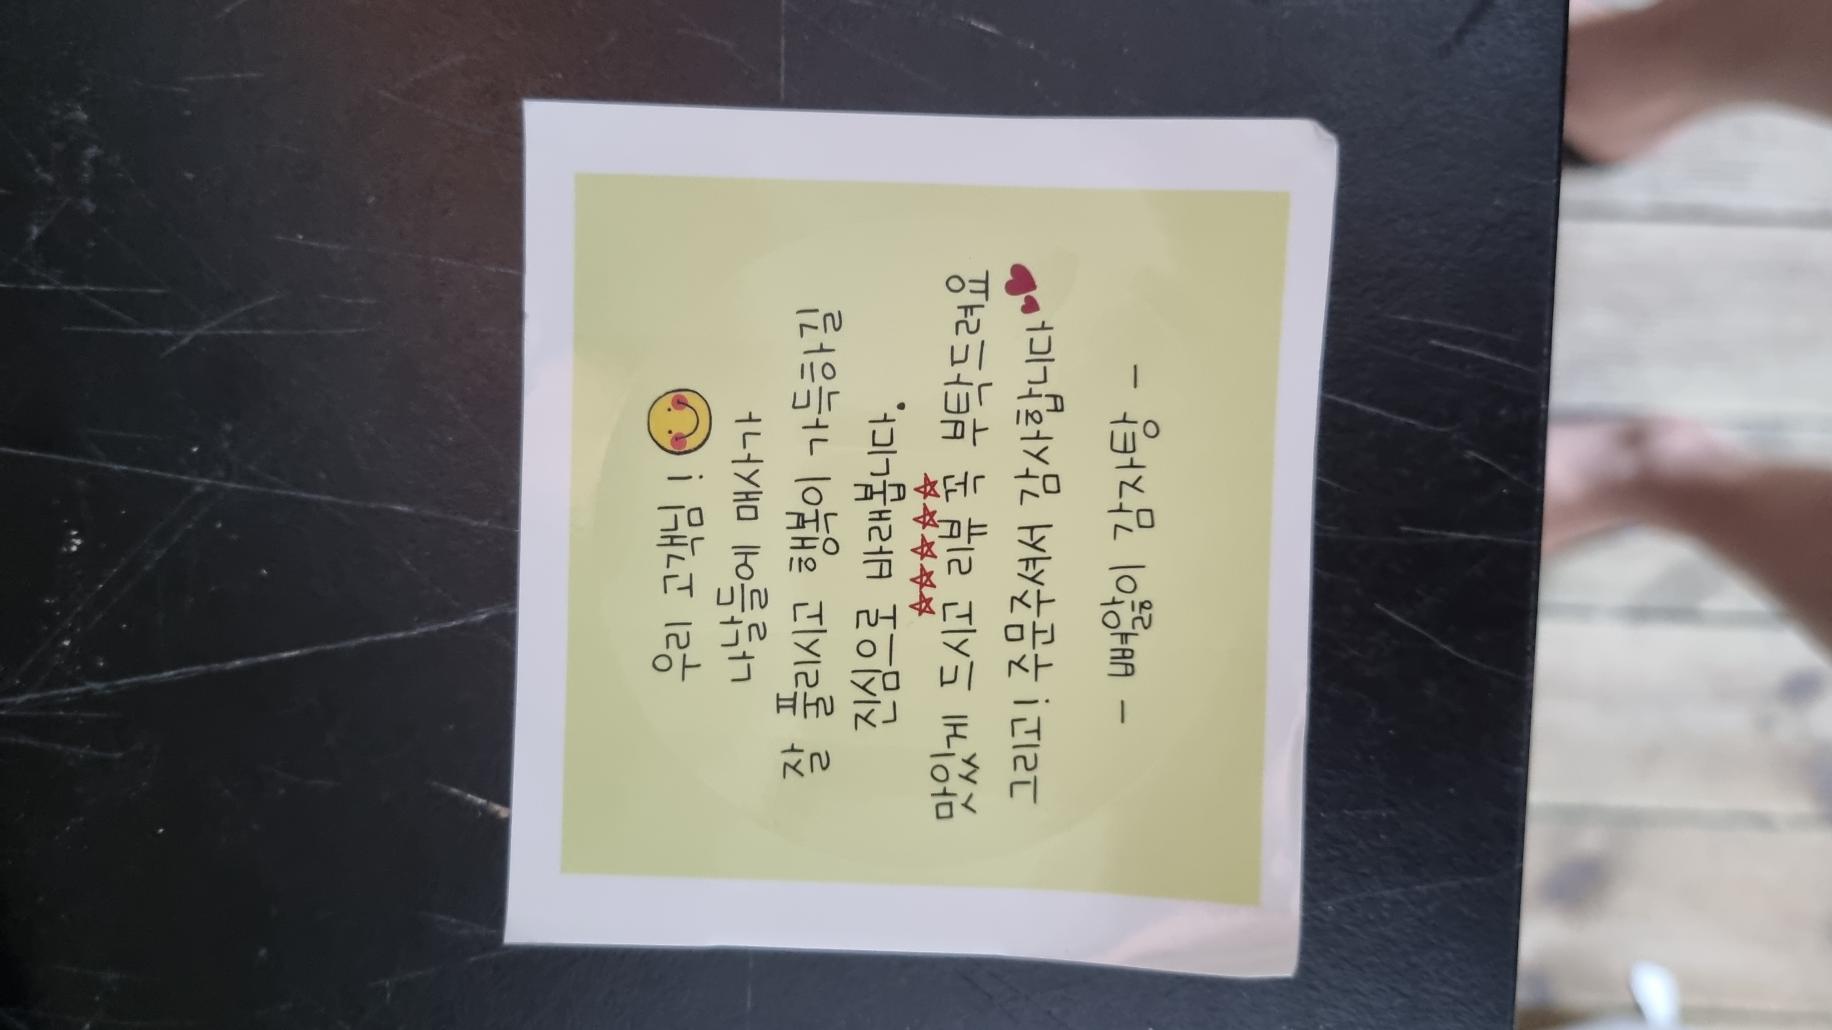 우리 고객님!
나날들에 매사가
잘 풀리시고 행복이 가득하길
진심으로 바래봅니다.
☆☆☆☆☆
맛있게 드시고 리뷰 꼭 부탁드려요
그리고! 주문주셔서 감사합니다
- 뼈앓이 감자탕 -